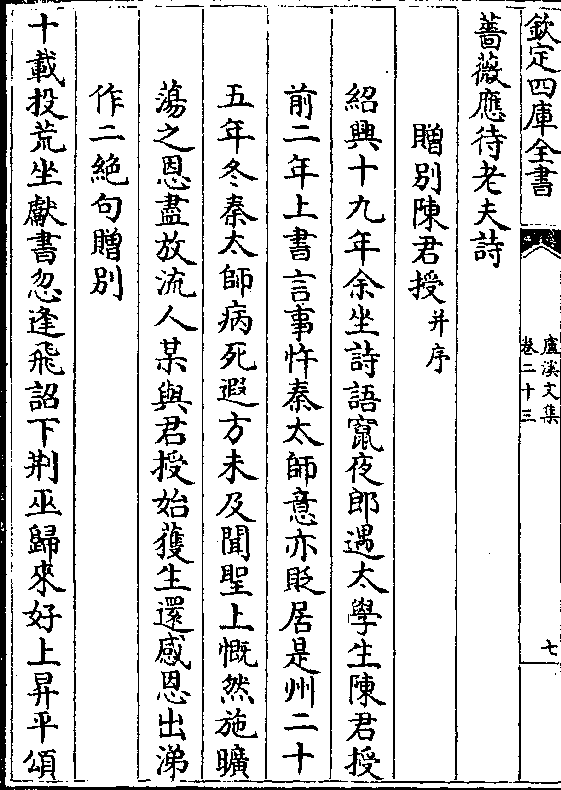 欽定四庫全書
盧溪文集
卷二十三
七
薔薇應待老夫詩
贈別陳君授并序
紹興十九年余坐詩語竄夜郎遇太學生陳君授
前二年上書言事忤秦太師意亦貶居是州二十
五年冬秦太師病死遐方未及聞聖上慨然施曠
蕩之恩盡放流人某與君授始獲生還感恩出涕
作二絶句贈別
十載投荒坐獻書忽逢飛詔下荆巫歸來好上昇平頌